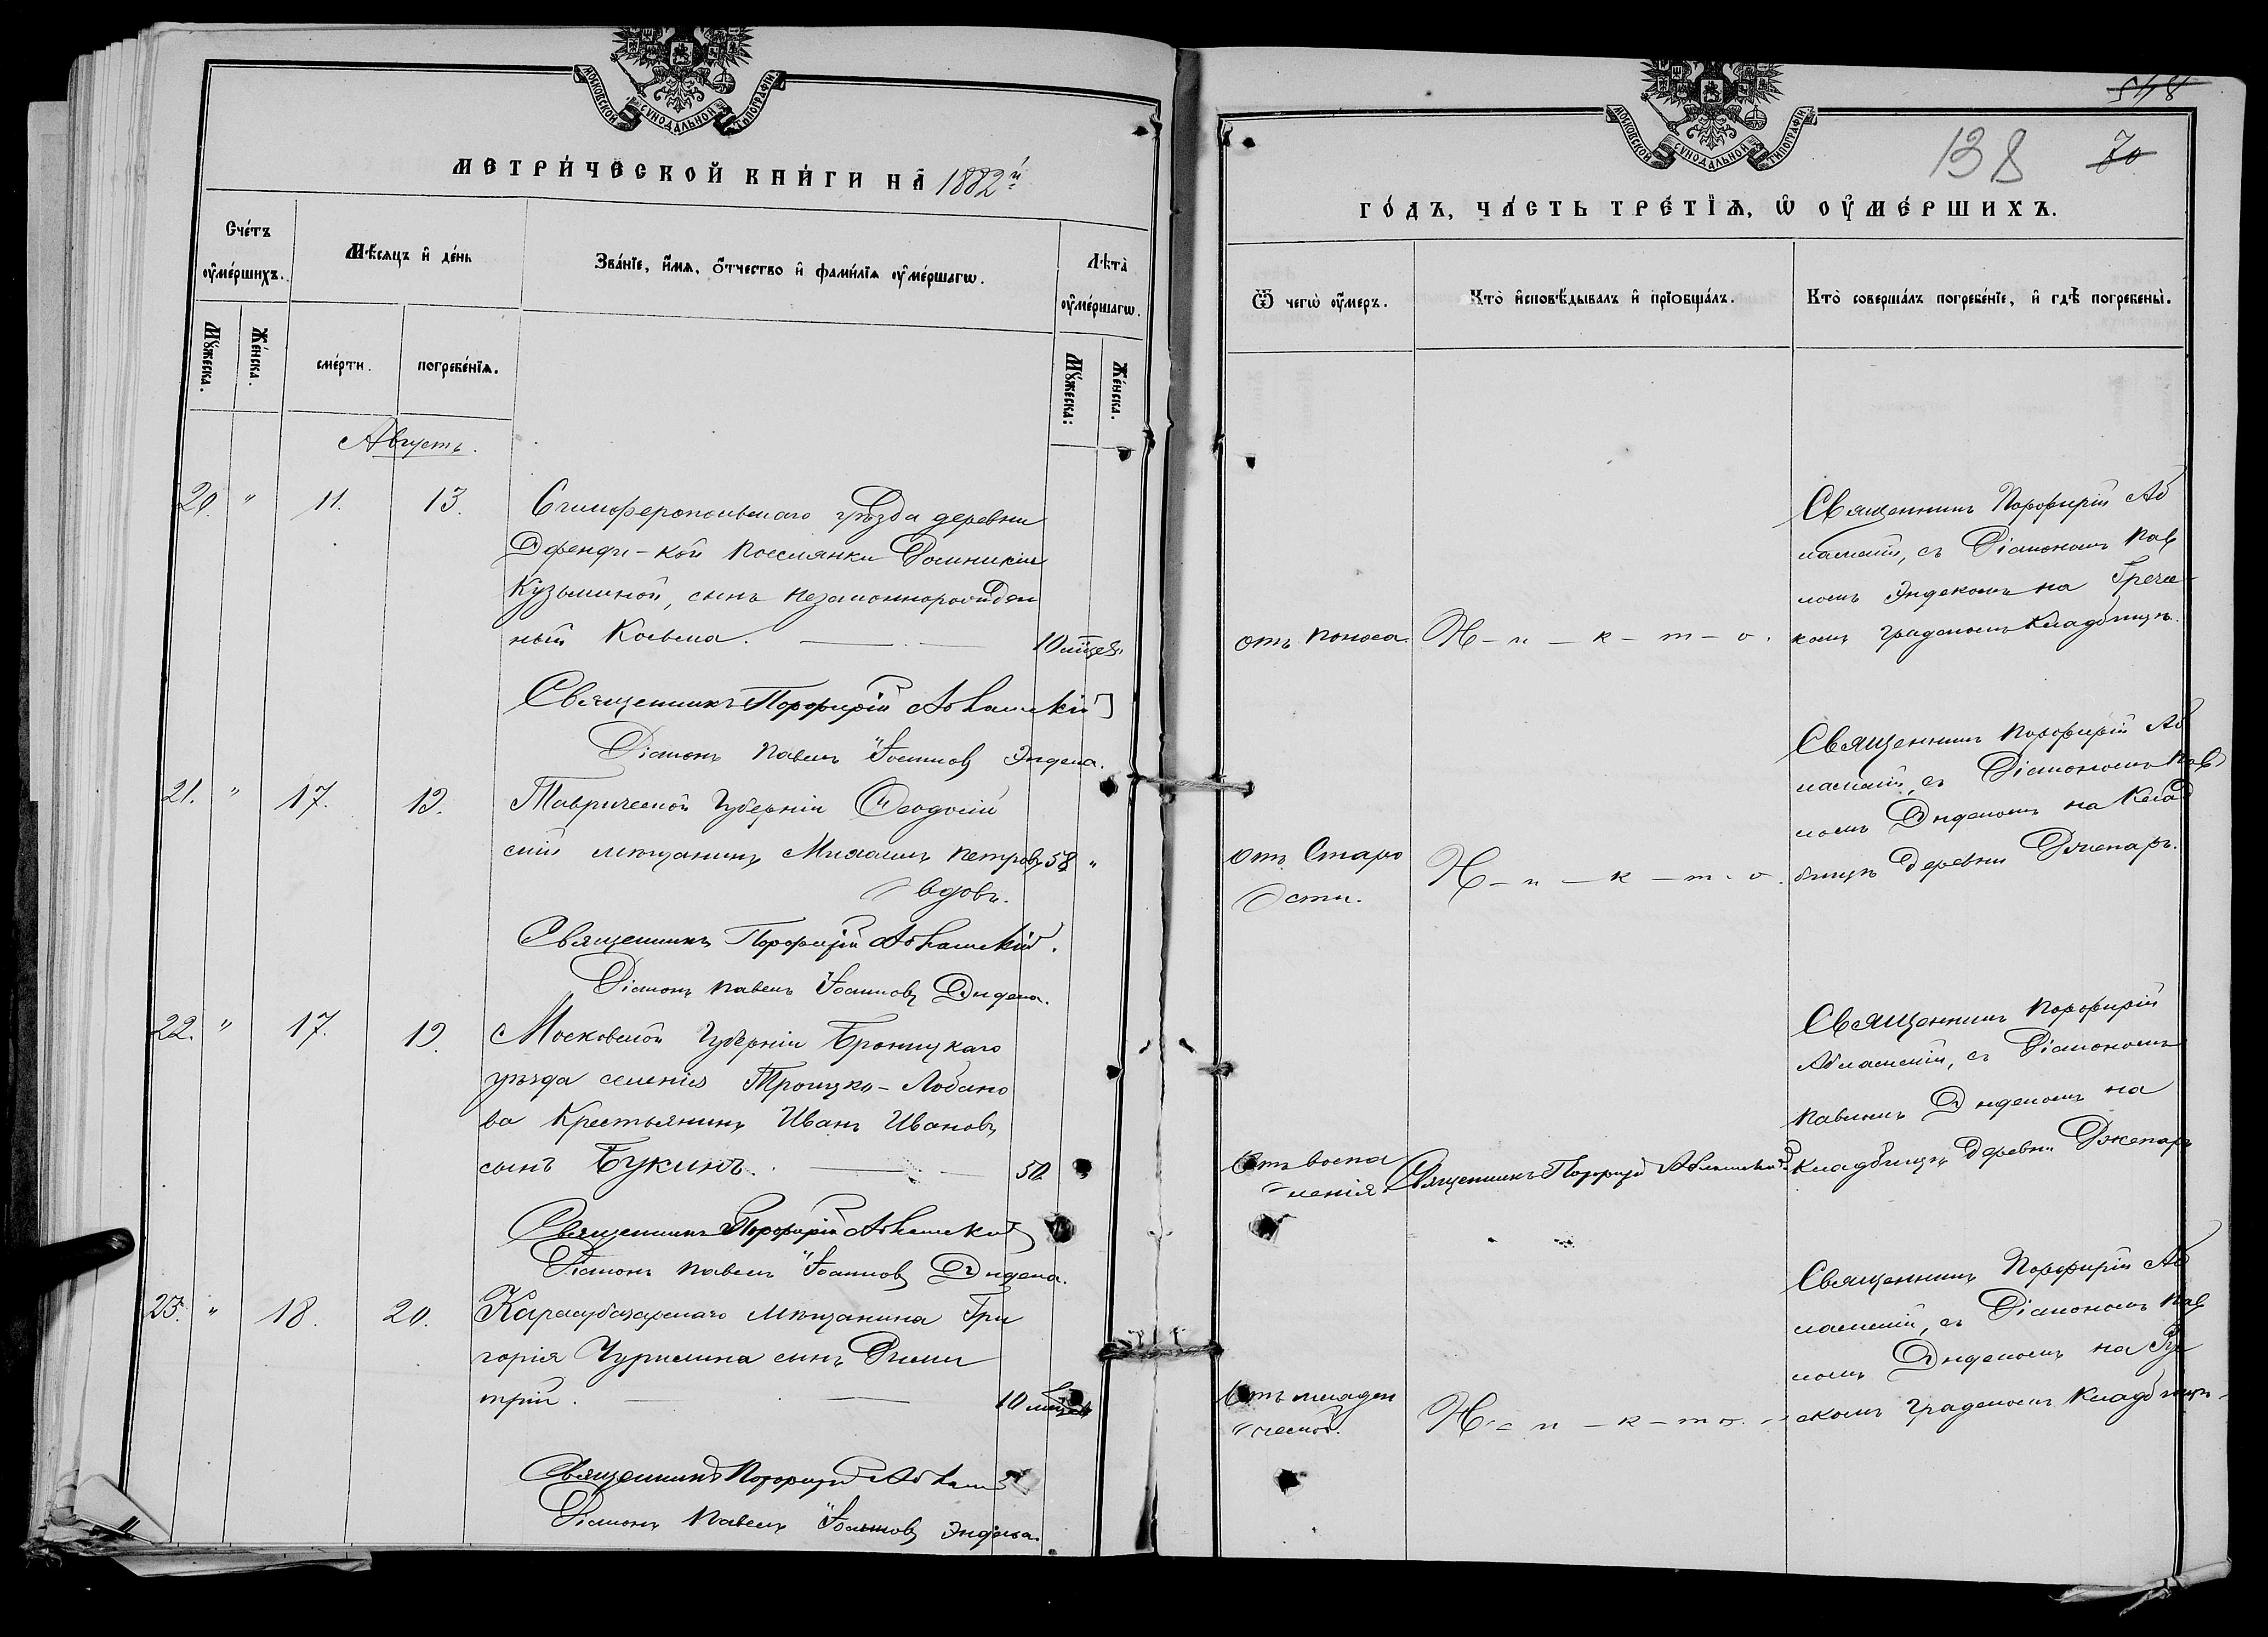 МОСКОВСКОЙ СѴНОДАЛЬНОЙ ТИПОГРАФІИ
МЕТРИ́ЧЕСКОЙ КНИ́ГИ НА̀ 1882й
Сче́тъ ѹ҆ме́ршихъ.
Мꙋ́жеска.
Же́нска.
Мѣ́сяцъ и҆ де́нь
сме́рти.
погребе́нїѧ.
Зва́нїе, и҆́мѧ, ѻ҆́тчество и҆ фами́лїѧ ѹ҆ме́ршагѡ.
Лѣ́та ѹ҆ме́ршагѡ.
Мꙋ́жеска:
Же́нска.
Августъ.
20. " 11. 13.
Симферопольскаго уѣзда деревни
Эфенди-кой поселянки Домникіи
Кузьминой, сынъ незаконнорожден
ный Косьма. 10 мцев.
Священникъ Порфирій Абламскій
Діаконъ Павелъ Іоанновъ Эндека.
21. " 17. 19.
Таврической Губерніи Ѳеодосій
скій мѣщанинъ Михаилъ Петровъ 58 "
вдовъ.
Священникъ Порфирій Абламскій.
Діаконъ Павелъ Іоанновъ Эндека.
22. " 17. 19.
Московской Губерніи Бронницкаго
уѣзда селенія Троицко-Лобано
ва Крестьянинъ Иванъ Ивановъ
сынъ Букинъ. 50.
Священникъ Порфирій Абламскій
Діаконъ Павелъ Іоанновъ Эндека.
23. " 18. 20.
Карасубазарскаго мѣщанина Гри
горія Чурилина сынъ Дими
трій. 10 мцев
Священникъ Порфирій
Діаконъ Павелъ Іоанновъ Эндека.
МОСКОВСКОЙ СѴНОДАЛЬНОЙ ТИПОГРАФІИ
548
138 70
ГО́ДЪ, ЧА́СТЬ ТРЕ́ТЇѦ, Ѡ҆ ОУ҆МЕ́РШИХЪ.
Ѿ чегѡ̀ ѹ҆́меръ.
Кто̀ и҆сповѣ́дывалъ и҆ прїобща́лъ.
Кто̀ соверша́лъ погребе́нїе, и҆ гдѣ̀ погребены̀.
отъ поноса.
Н-и-к-т-о.
Священникъ Порфирій Аб
ламскій, съ Діакономъ Пав
ломъ Эндекомъ на Гречес
комъ градскомъ Кладбищѣ.
отъ Старо
сти.
Н-и-к-т-о.
Священникъ Порфирій Аб
ламскій, съ Діакономъ Пав
ломъ Эндекомъ на Клад
бищѣ деревни Джепаръ.
Отъ воспа
ленія
Священникъ Порфирій Аблямскій
Священникъ Порфирій
Абламскій, съ Діакономъ
Павломъ Эндекомъ на
Кладбищѣ деревни Джепаръ
Отъ младен
ческой.
Н-и-к-т-о.
Священникъ Порфирій Аб
ламскій, съ Діакономъ Пав
ломъ Эндекомъ на Рус
скомъ градскомъ Кладбищѣ.